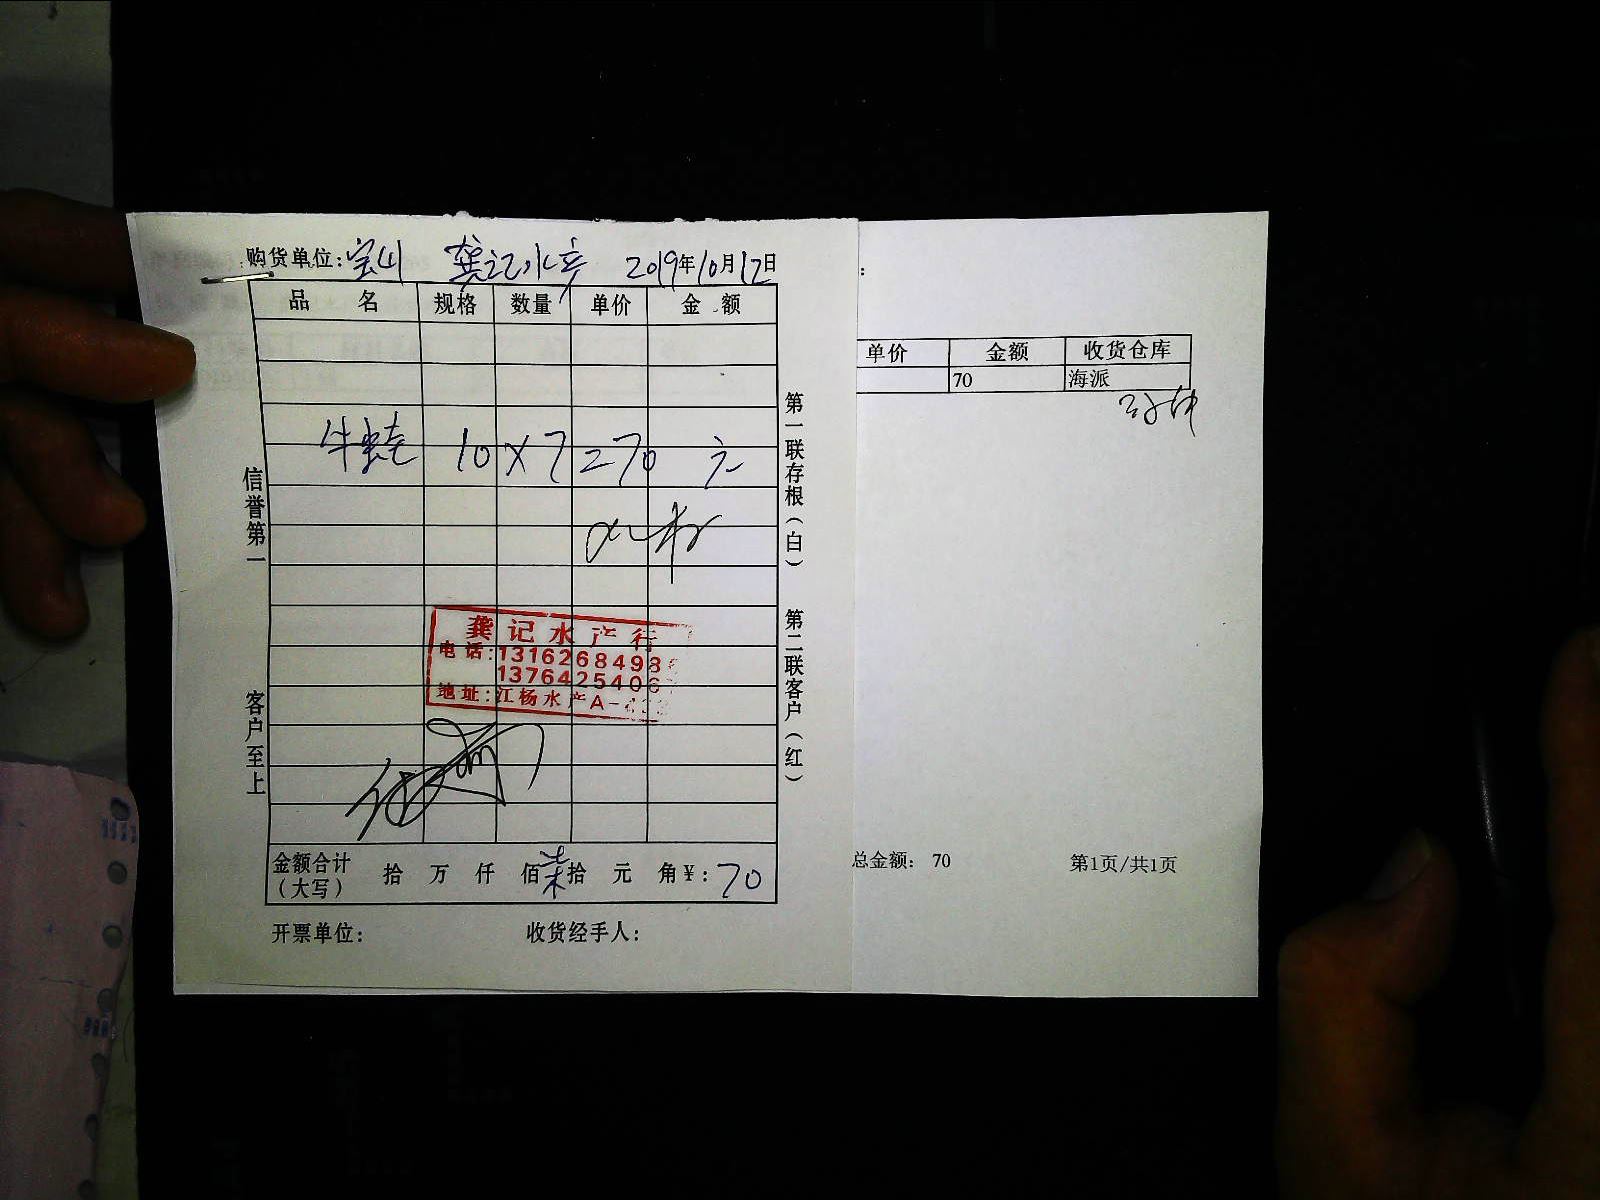 购货单位：宝山 龚记水产 2019年10月12日
品名 规格 数量 单价 金额
牛蛙 10×7=70 元
龚记水产行
电话：1316268498
1376425406
地址：江杨水产A-
金额合计（大写） 拾 万 仟 佰 柒拾 元 角 ¥：70
开票单位： 收货经手人：
信誉第一
客户至上
第一联存根（白）
第二联客户（红）
：
单价 金额 收货仓库
70 海派
总金额： 70 第1页/共1页